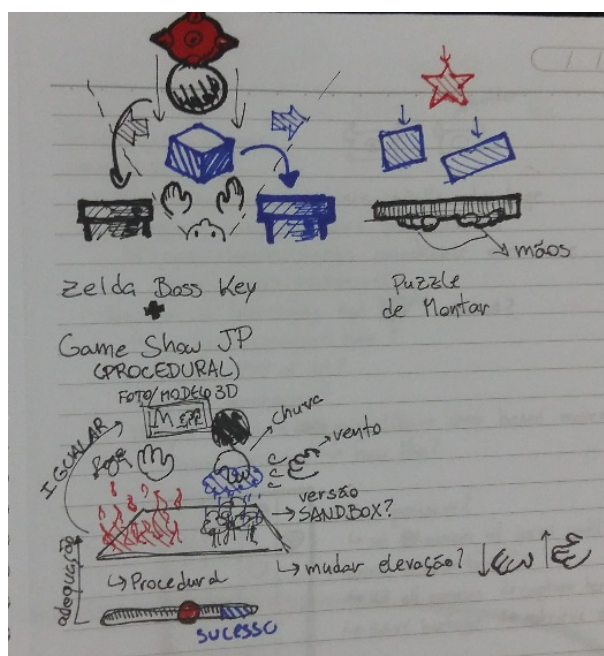 Zelda Boss Key
+
Game Show JP
(PROCEDURAL)
Puzzle
de Montar
mãos
FOTO/MODELO 3D
IGUALAR
chuva
vento
fogo
versão
SANDBOX?
adequação
Procedural
mudar elevação?
SUCESSO